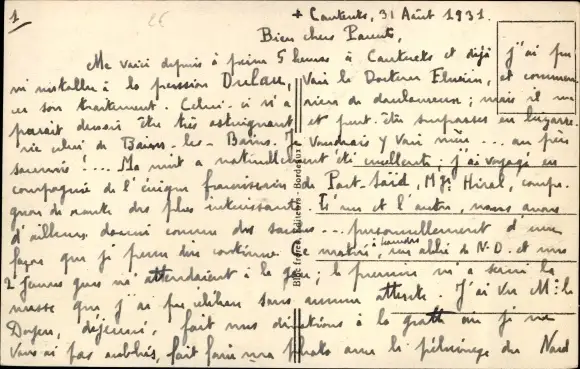 1
+ Cauterets, 31 Août 1931.
Bien chers Parents,
Me voici depuis à peine 5 heures à Cauterets et déjà j'ai pu
m'installer à la pension Dulau, voir le Docteur Flurin, et commencer
son traitement. Celui-ci n'a rien de douloureux; mais il me
paraît devoir être très astreignant et peut-être surpasser en bizarre
rie celui de Bains-les-Bains. Je voudrais y voir
! ... Ma nuit a naturellement été excellente; j'ai voyagé en
compagnie de l'évêque franciscain de Port-Saïd, Mgr Hiral, compa-
gnon de route des plus intéressants. L'un et l'autre, nous avons
d'ailleurs dormi comme des ... personnellement d'une
façon que je peux dire continue. Ce matin, à Lourdes, un abbé de N-D. et
2 jeunes gens m'attendaient à la gare; le premier m'a servi la
messe que j'ai pu célébrer sans aucune attente. J'ai vu M: le
Doyen, déjeuné, fait mes dévotions à la grotte où je ne
vous ai pas oubliés, fait faire ma photo avec le pèlerinage du Nord
Bloc frères, Editeurs - Bordeaux